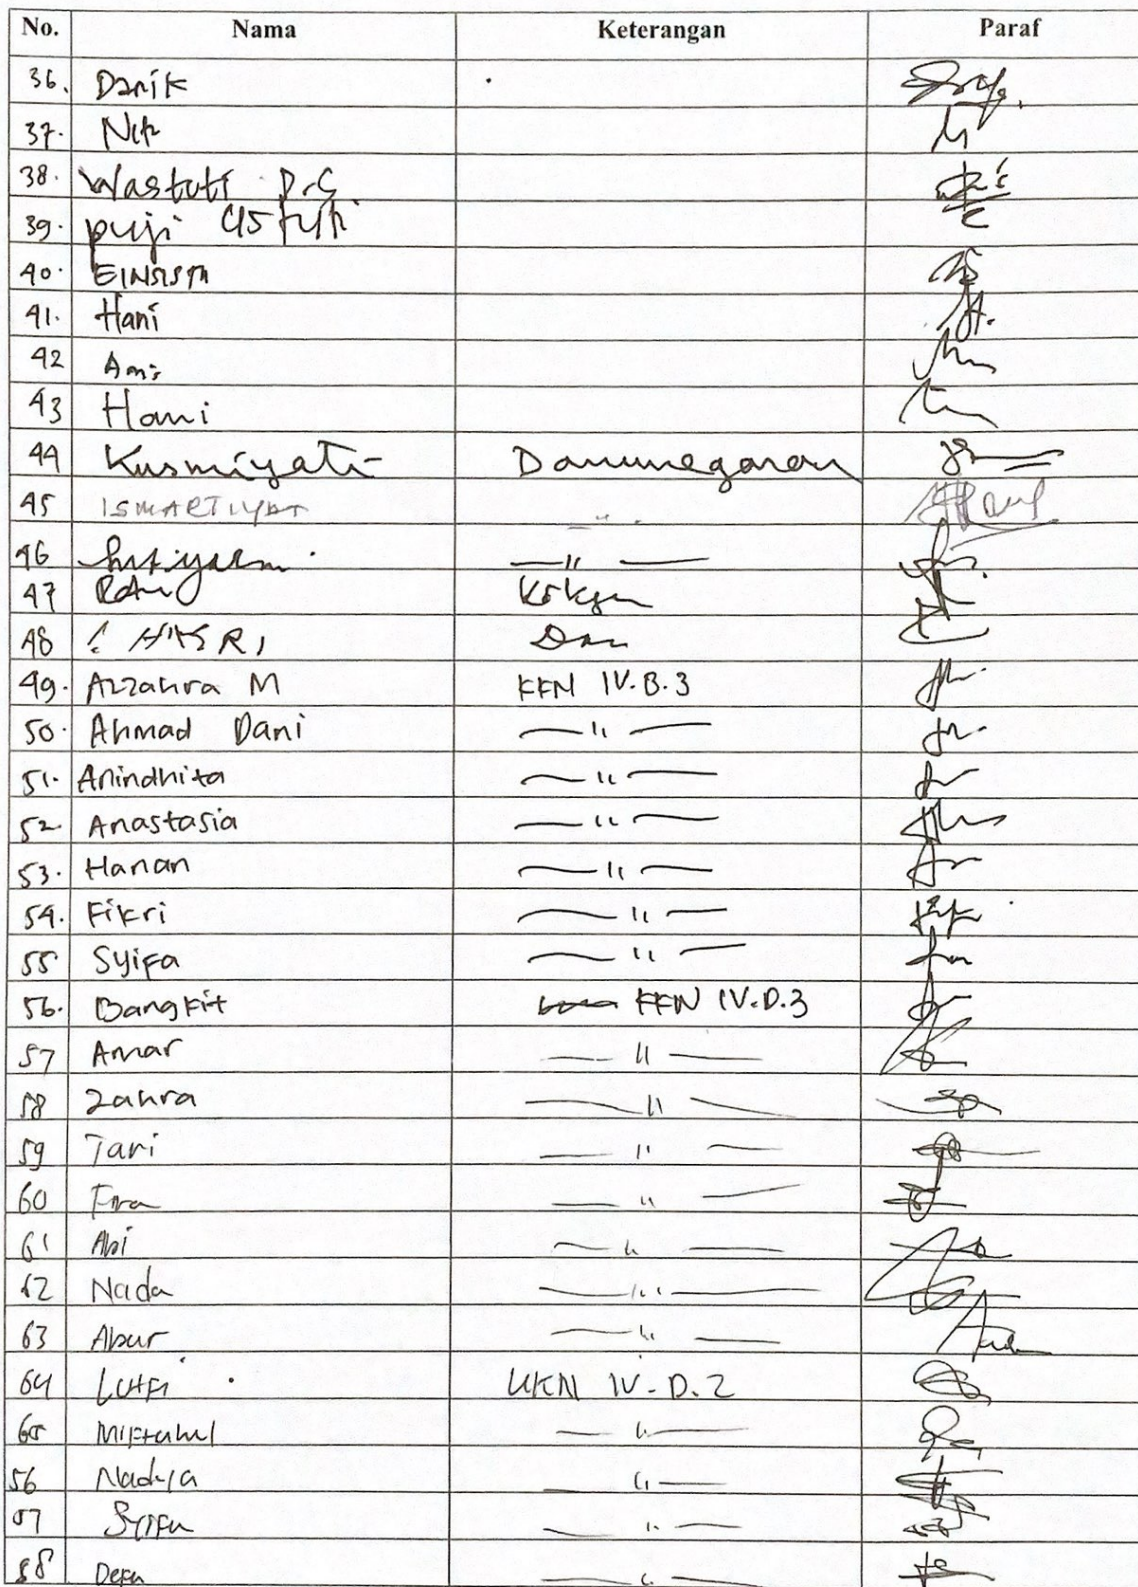 No. Nama Keterangan Paraf
36. Danik
37. Niti
38. Wastuti D.S
39. puji astuti
40.
41. Hani
42 Ami
43 Hami
44 Kusmiyati Danunegaran
45 ISMARTIYAT
46 — " —
47
48
49. Azzahra M KKN IV.B.3
50. Ahmad Dani — " —
51. Anindhita — " —
52 Anastasia — " —
53. Hanan — " —
54. Fikri — " —
55 Syifa — " —
56. Bangkit KKN IV.D.3
57 Amar — " —
58 Zahra — " —
59 Tari — " —
60 — " —
61 Abi — " —
62 Nada — " —
63 Abur — " —
64 Lutfi KKN IV-D.2
65 Miftahul — " —
56 Nadya — " —
57 Syifa — " —
58 Defa — " —